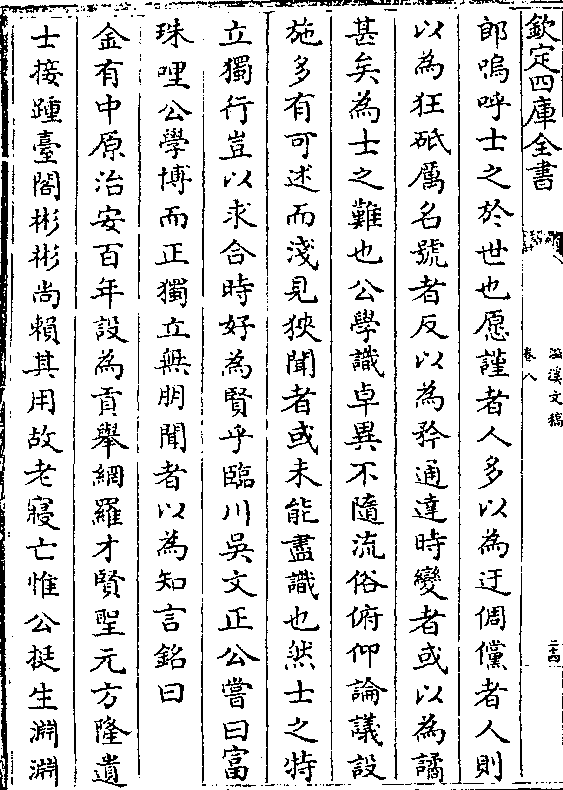 欽定四庫全書
滋溪文稿
卷八
二十四
郎嗚呼士之於世也愿謹者人多以為迂倜儻者人則
以為狂砥厲名號者反以為矜通達時變者或以為譎
甚矣為士之難也公學識卓異不隨流俗俯仰論議設
施多有可述而淺見狹聞者或未能盡識也然士之特
立獨行豈以求合時好為賢乎臨川吳文正公嘗曰富
珠哩公學博而正獨立無朋聞者以為知言銘曰
金有中原治安百年設為貢舉網羅才賢聖元方隆遺
士接踵臺閣彬彬尚賴其用故老寖亡惟公挺生淵淵